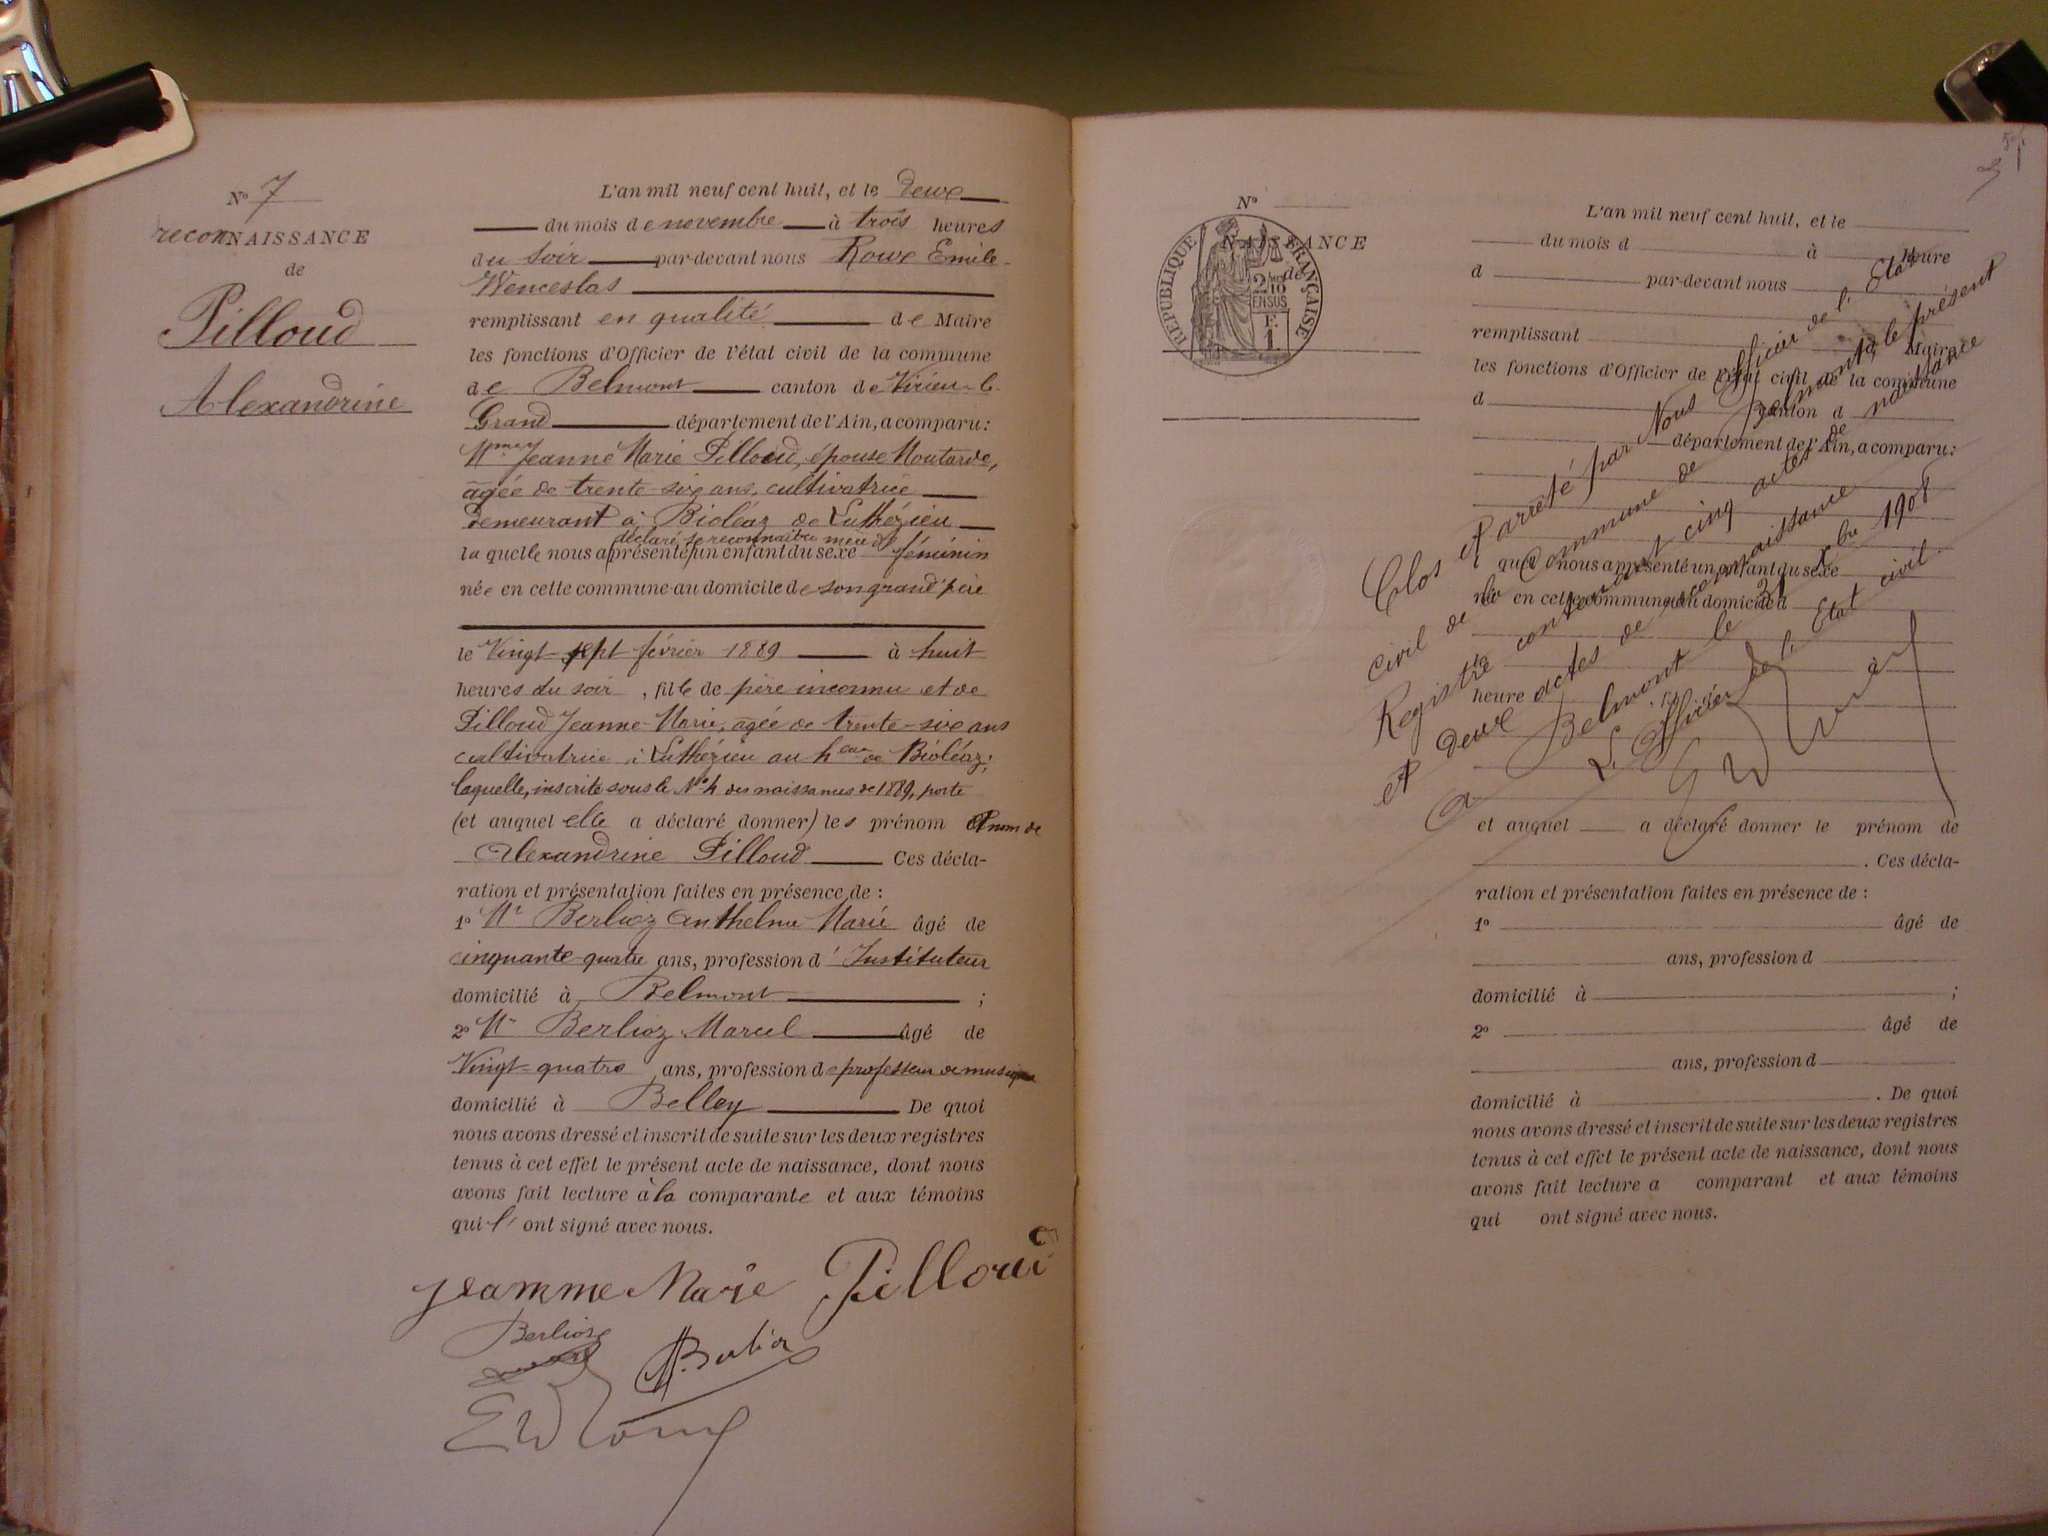 N° 7
reconNAISSANCE
de
Pilloud
Alexandrine
L'an mil neuf cent huit, et le deux
du mois de novembre à trois heures
du soir par-devant nous Roux Emile
Wenceslas
remplissant en qualité de Maire
les fonctions d'Officier de l'état civil de la commune
de Belmont canton de Virieu-le-
Grand département de l'Ain, a comparu:
Jeanne Marie Pilloud, épouse Moutarde,
âgée de trente-six ans, cultivatrice
demeurant à Bioléaz de Luthézieu
déclaré se reconnaître mère de
laquelle nous a présenté un enfant du sexe féminin
née en cette commune au domicile de son grand'père
le Vingt-sept février 1889 à huit
heures du soir, fille de père inconnu et de
Pilloud Jeanne-Marie, âgée de trente-six ans
cultivatrice à Luthézieu au heau de Bioléaz;
laquelle, inscrite sous le N° 4 des naissances de 1889, porte
(et auquel elle a déclaré donner) les prénom et nom de
Alexandrine Pilloud Ces décla-
ration et présentation faites en présence de :
1° Mr Berlioz Anthelme Marie âgé de
cinquante-quatre ans, profession d'Instituteur
domicilié à Belmont ;
2° Mr Berlioz Marcel âgé de
Vingt-quatre ans, profession de professeur de musique
domicilié à Belley De quoi
nous avons dressé et inscrit de suite sur les deux registres
tenus à cet effet le présent acte de naissance, dont nous
avons fait lecture à la comparante et aux témoins
qui l'ont signé avec nous.
Jeanne Marie Pilloud
Berlioz
Berlioz
EWRoux
N°
NAISSANCE
de
RÉPUBLIQUE FRANÇAISE
2/10
EN SUS
F.
1
L'an mil neuf cent huit, et le
du mois d à heure
d par-devant nous
remplissant Maire
les fonctions d'Officier de l'état civil de la commune
d canton d
département de l'Ain, a comparu:
quel nous a présenté un enfant du sexe
né en cette commune au domicile d
le à
heure
et auquel a déclaré donner le prénom de
. Ces décla-
ration et présentation faites en présence de :
1° âgé de
ans, profession d
domicilié à ;
2° âgé de
ans, profession d
domicilié à . De quoi
nous avons dressé et inscrit de suite sur les deux registres
tenus à cet effet le présent acte de naissance, dont nous
avons fait lecture a comparant et aux témoins
qui ont signé avec nous.
Clos et arrêté par Nous Officier de l'Etat
civil de la Commune de Belmont, le présent
Registre contenant cinq actes de naissance
et deux actes de reconnaissance
à Belmont le 31 Xbre 1908
L'Officier de l'Etat civil